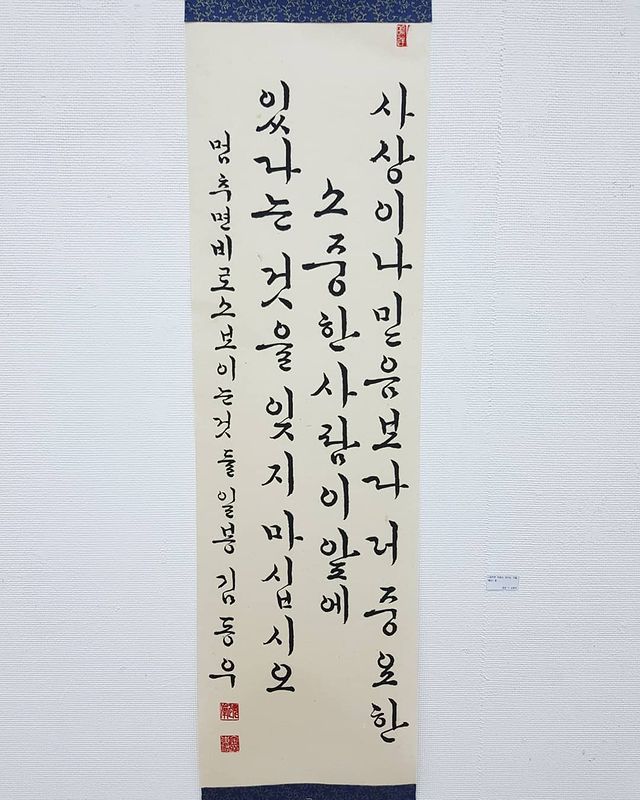 사상이나 믿음보다 더 중요한
소중한 사람이 앞에
있다는 것을 잊지 마십시오
멈추면 비로소 보이는 것들 일봉 김동우